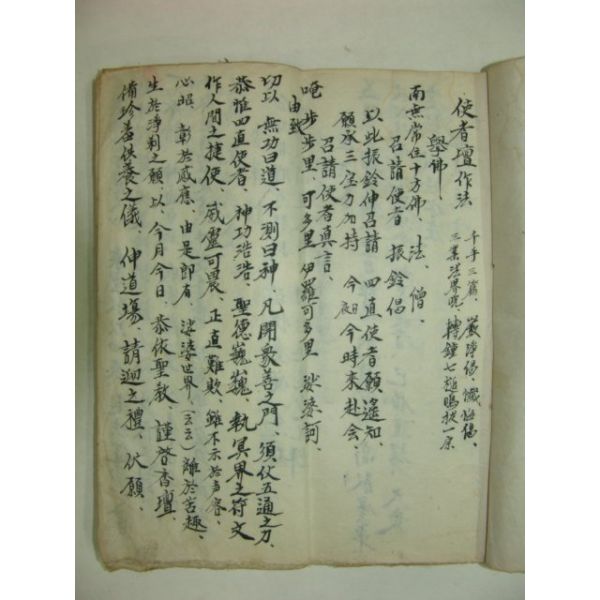 使者壇作法
千手三篇、嚴淨偈、懺悔偈、
三業法界呪、轉鐘七䭔鳴鈸一宗
擧佛、
南無常住十方佛、法、僧、
召請使者 振鈴偈
以此振鈴伸召請 四直使者願遙知、
願承三宝力加持 今夜今時来赴会、
召請使者真言、
唵 步步里、可多里 伊羅可多里 娑婆訶
由致
切以 無功曰道、不測曰神、凡開衆善之門、須仗五通之力、
恭惟四直使者、神功浩浩、聖德巍巍、執冥界之符文
作人間之捷使、威靈可震、正直難欺、雖不示於声容、
心昭 彰於感應、由是卽有 娑婆世界、(云云)離於苦趣、
生於淨刹之願、以、今月今日、恭依聖教、謹啓香壇、
備珍羞供養之儀 伸道場、請迎之禮、伏願、